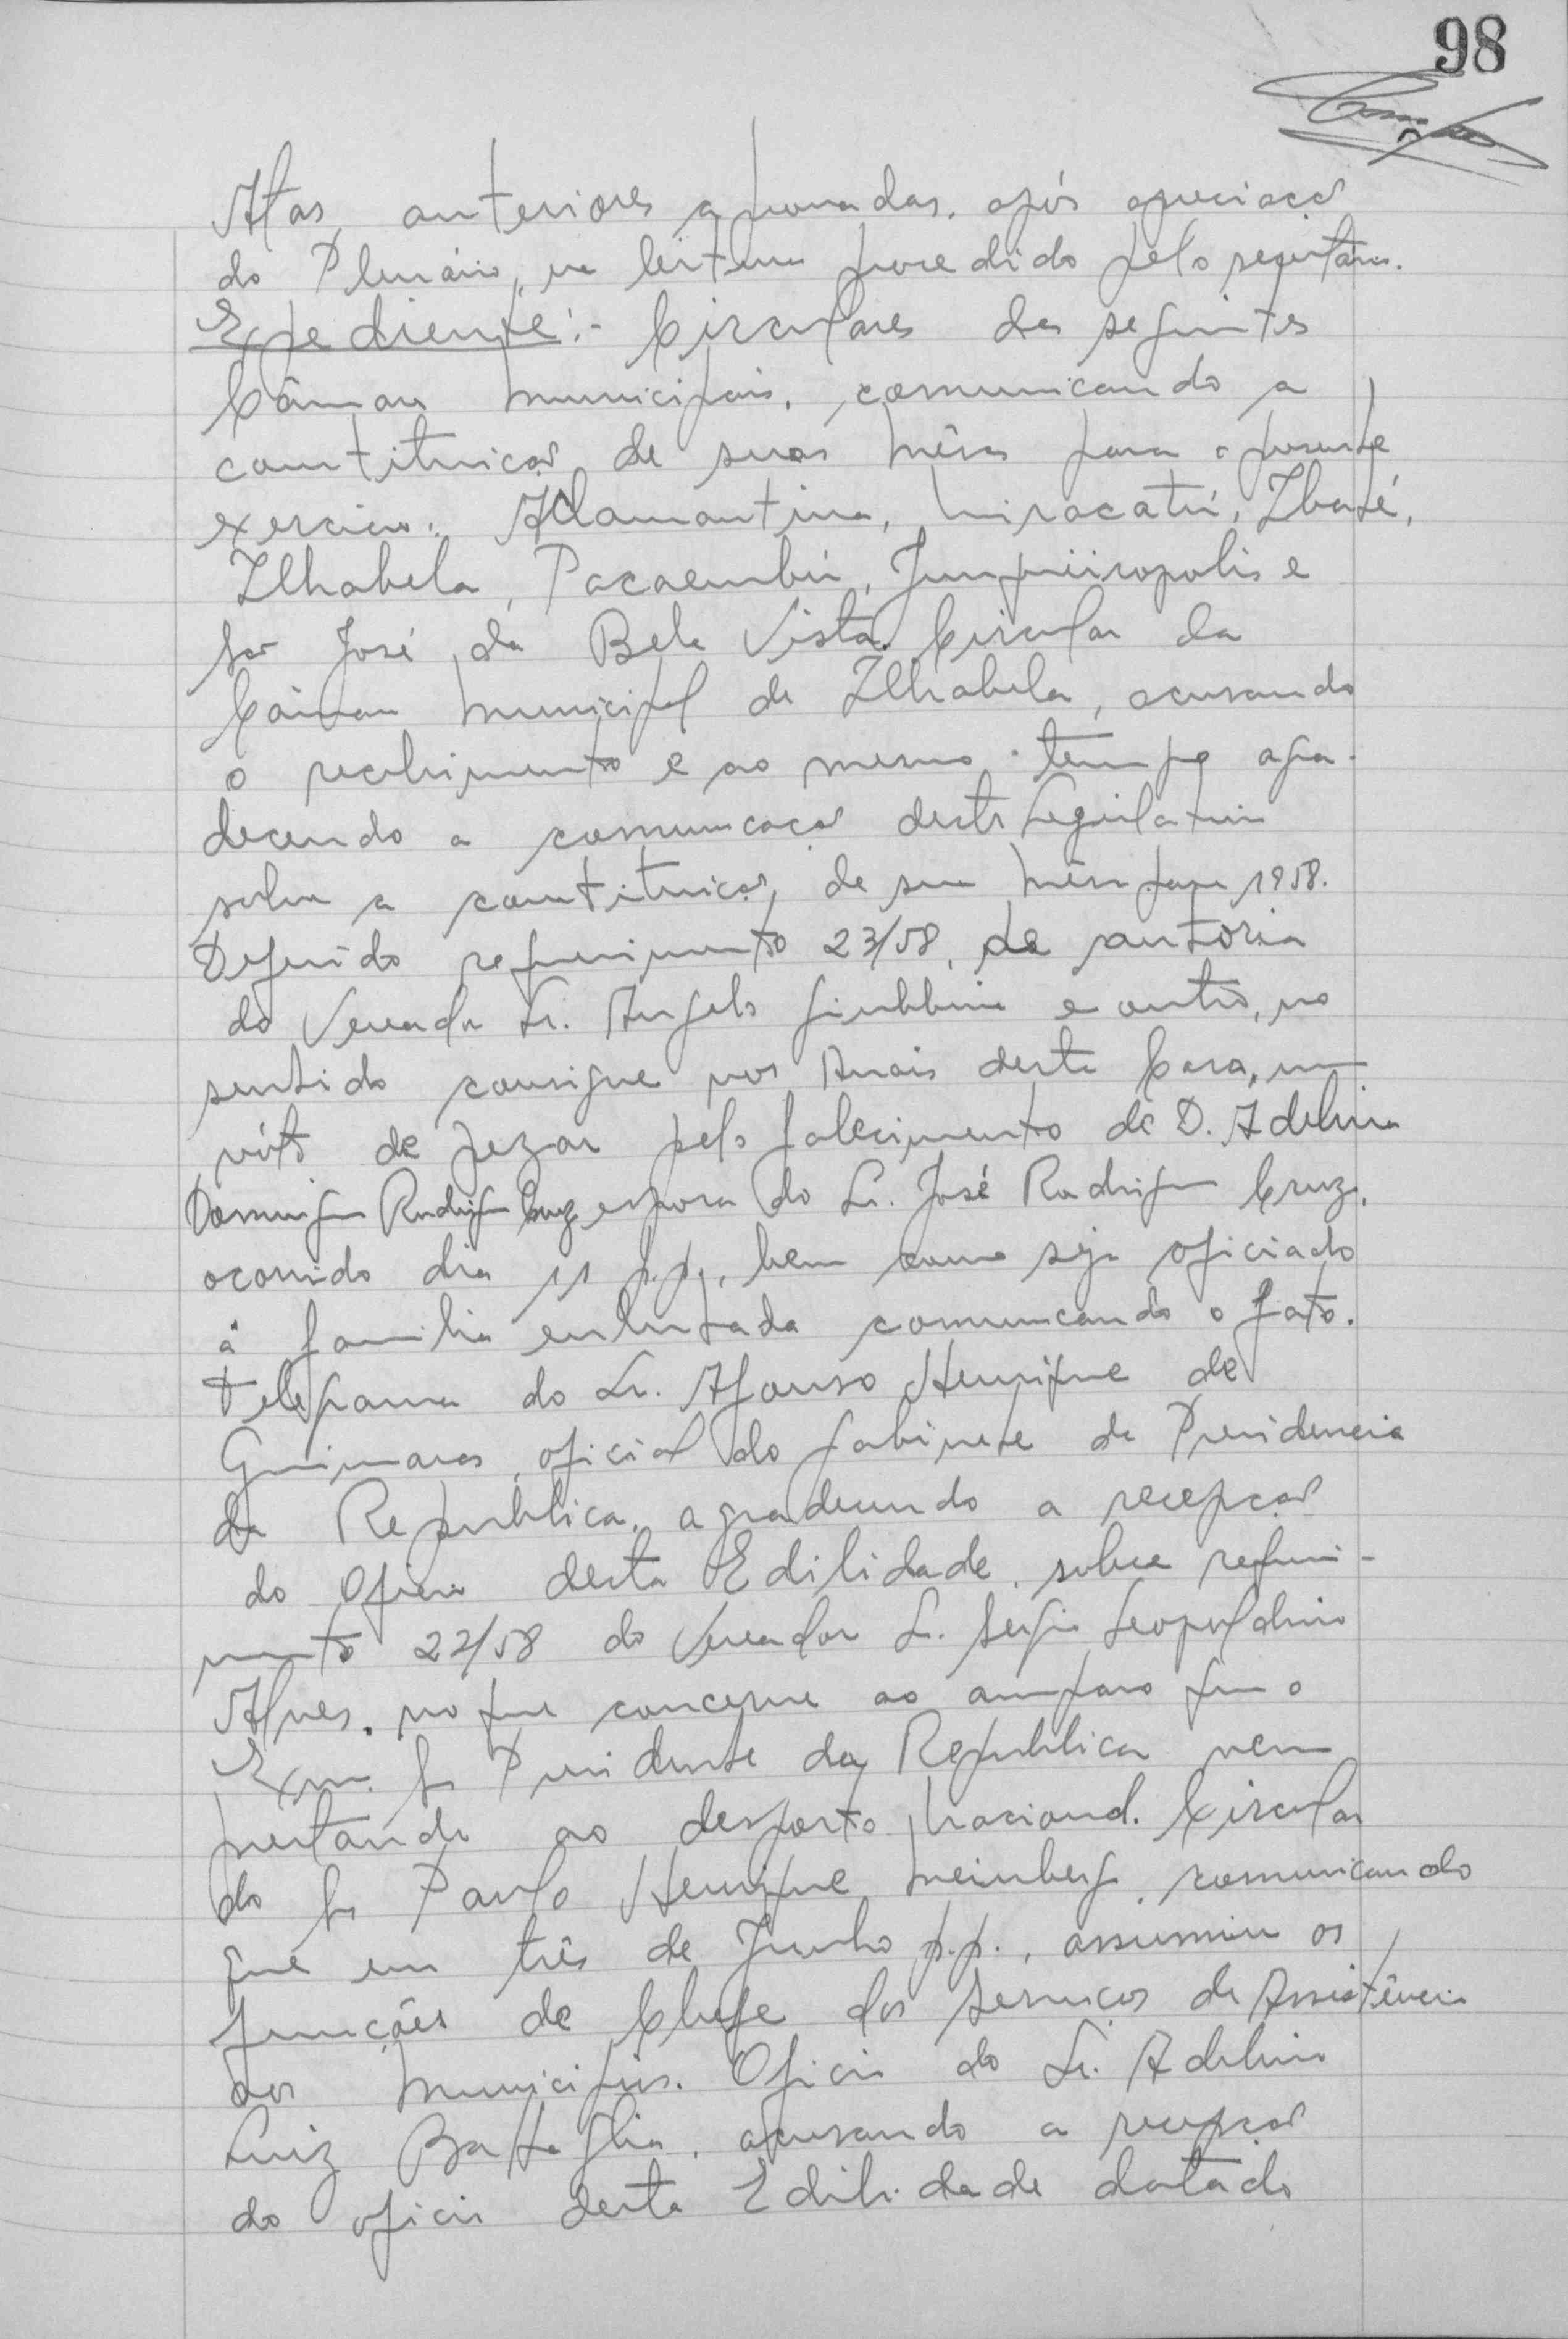 98
Atas anteriores aprovadas, após apreciação
do Plenário, na leitura procedido pelo secretário.
Expediente:- Circulares das seguintes
Câmaras Municipais, comunicando a
constituição de suas mêsas para o presente
exercicio: Adamantina, Miracatú, Ibaté,
Ilhabela, Pacaembú, Junqueiropolis e
São José da Bela Vista. Circular da
Câmara Municipal de Ilhabela, acusando
o recebimento e ao mesmo tempo agra-
decendo a comunicação deste Legislativo
sobre a constituição de sua mêsa para 1958.
Deferido requerimento 23/58, de autoria
do Vereador Sr. Angelo e outro, no
sentido consigne nos Anais desta Casa, um
vóto de pezar pelo falecimento de D. Adelina
Domingu Rodrigues Cruz esposa do Sr. José Rodrigues Cruz,
ocorrido dia 11 p.p., bem como seja oficiado
á familia enlutada comunicando o fato.
Telegrama do Sr. Afonso Henrique de
Guimaraes, oficial do Gabinete da Presidencia
da Republica, agradecendo a recepção
do Oficio desta Edilidade, sobre requeri-
mento 22/58 do Vereador Sr. Sergio Leopoldino
Alves, no que concerne ao amparo que o
Exmo. Sr Presidente da Republica vem
prestando ao desporto Nacional. Circular
do Sr Paulo Henrique Meinberg, comunicando
que em três de Junho p.p., assumiu as
funções de Chefe dos Serviços de Assistência
aos Municipios. Oficio do Sr. Adelino
Luiz Bataglia, acusando a recepção
do oficio desta Edilidade datado